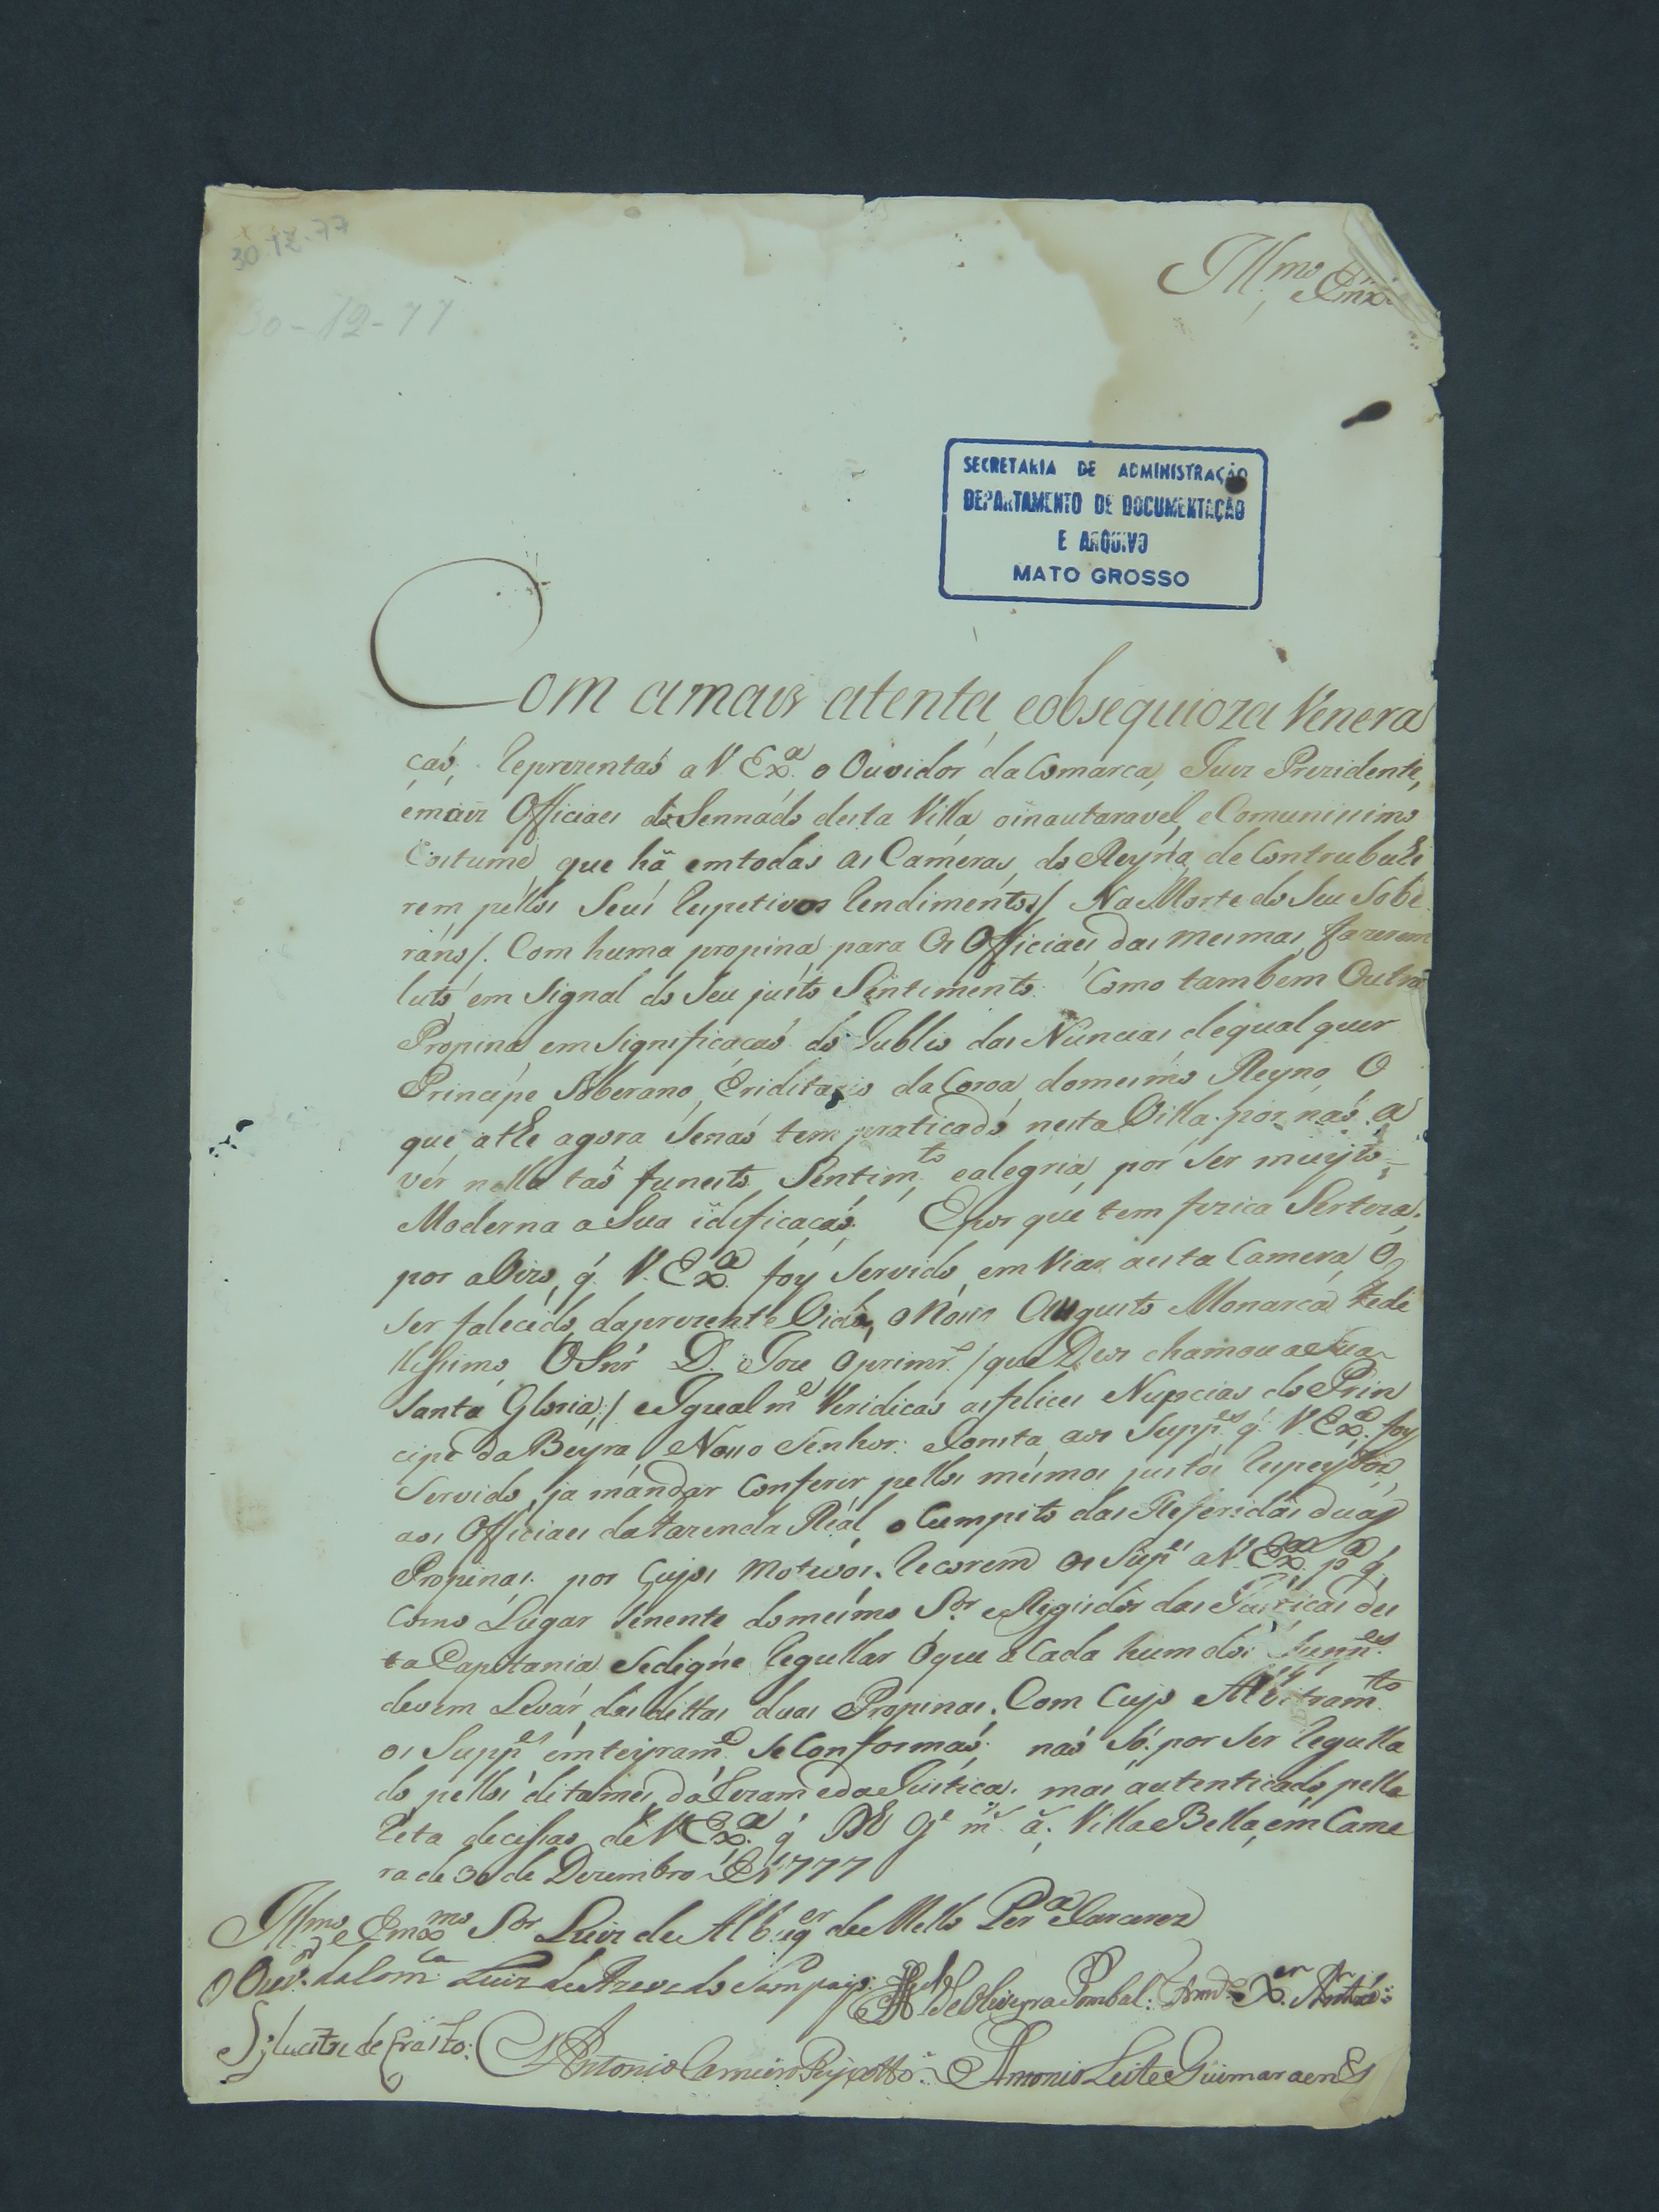 30.12.77
30-12-77
Illmo
e Exmo
SECRETARIA DE ADMINISTRAÇÃO
DEPARTAMENTO DE DOCUMENTAÇÃO
E ARQUIVO
MATO GROSSO
Com amaior atenta, eobsequioza Venera
çaó, reprezentaó a V. Exª. o Ouvidór da Comarca, Juiz Prezidente,
emaiz Officiaes do Sennádo desta Villa oinautaravel, eComunissimo
Costume, que hâ emtodas as Cameras, do Reyno, de Contrubuhi
rem péllos Seus respetivos rendimentos/ Na Morte do Seu Sobe
ráno/. Com huma propina, para Os Officiaes das mesmas fazerem
luto em Signal do Seu justo Sentimento: Como tambem Outra
Propina em Significaçaó do Jublio das Nuncias dequal quer
Principe Soberano, Eriditario da Coroa, domesmo Reyno, O
que athe agora Senaó tem praticado nesta Villa. por naó a
vér nella taó funesto Sentim.to ealegria, por Ser muyto
Moderna a Sua idificaçaó. Epor que tem fizica Serteza,
por aVizo, q̃ V. Exª. foy Servido, em Viar aesta Camera, O
Ser falecido daprezente Vida, o Nosso Augusto Monarca Fede
llissimo, O Snr̃ D. Joze Oprimr.o / que Deos chamou a Sua
Santa Gloria;/ e Igualm.e Veridicas asfelices Nupcias do Prin
cipe da Beyra Nosso Senhor: Consta aos Supp.es q̃ V. Exª. foy
Servido, ja mandar Conferir pellos mesmos justos respeytos,
aos Officiaes da Fazenda Reál, o Cumpito das Referidas duas
Propinas. por Cujos Motivos. recorem os Supp.es a V. Exª. pª q̃,
Como Lugar Tinente domesmo S.or e Regidor das Justicas des
ta Capitania Sedigne regullar Oque a Cada hum dos Supp.es
devem Levár, das dittas duas Propinas. Com Cujo Albitram.to
os Supp.es emteyram.e Se Conformaó; naó Só. por Ser regulla
do pellos ditames, da razam eda Justica. mas autenticado, pella
reta decisaó de V. Exª. q̃ D.s G.e m.s a.s Villa Bella, em Came
ra de 30 de Dezembro de 1777
Illmo e Exmo S.or Luiz de Albuq.er de Mello Per.ª e Caceres
O Ouv.or da Com.ca Luiz de Azevedo Sampayo
de Oliveyra Pombal. X.er
Sylvestre de
Antonio Carneiro Peyxotto
Antonio Leite Guimaraens